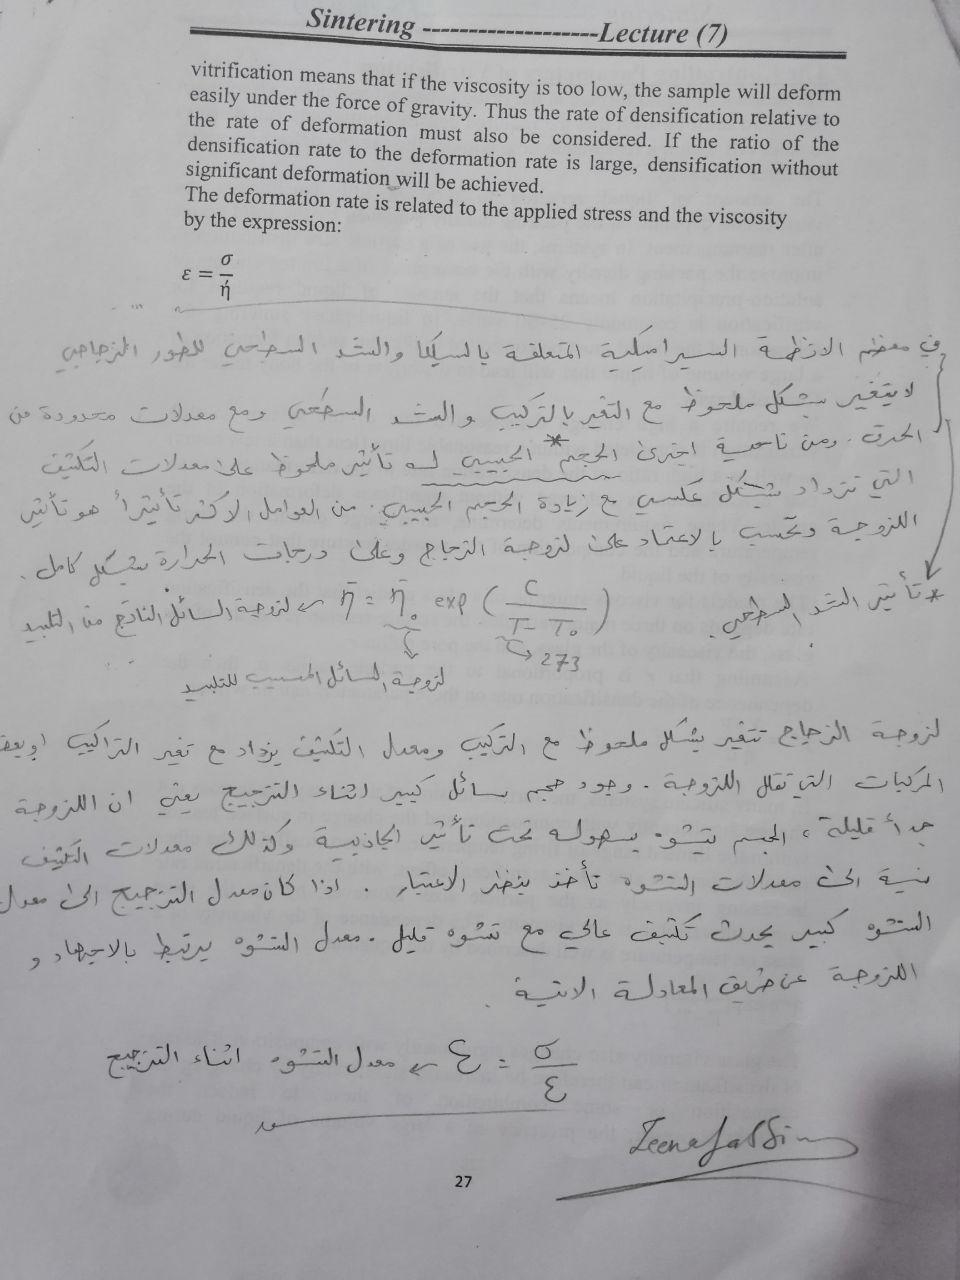 Sintering -------------------Lecture (7)
vitrification means that if the viscosity is too low, the sample will deform
easily under the force of gravity. Thus the rate of densification relative to
the rate of deformation must also be considered. If the ratio of the
densification rate to the deformation rate is large, densification without
significant deformation will be achieved.
The deformation rate is related to the applied stress and the viscosity
by the expression:
ε = σ/ή
في معظم الانظمة السيراميكية المتعلقة بالسليكا والشد السطحي للطور الزجاجي
لا يتغير بشكل ملحوظ مع التغير بالتركيب والشد السطحي ومع معدلات محدودة من
الحرق. ومن ناحية اخرى الحجم * الحبيبي له تأثير ملحوظ على معدلات التكثيف
التي تزداد بشكل عكسي مع زيادة الحجم الحبيبي. من العوامل الاكثر تأثيراً هو تأثير
اللزوجة وتحسب بالاعتماد على لزوجة الزجاج وعلى درجات الحرارة بشكل كامل.
* تأثير الشد السطحي.
η̄ = η̄₀ exp (C / T - T₀) لزوجة السائل الناتج من التلبيد
273
لزوجة السائل المسبب للتلبيد
لزوجة الزجاج تتغير بشكل ملحوظ مع التركيب ومعدل التكثيف يزداد مع تغير التراكيب او بعض
المركبات التي تقلل اللزوجة. وجود حجم سائل كبير اثناء التزجيج يعني ان اللزوجة
جداً قليلة، الجسم يتشوه بسهوله تحت تأثير الجاذبية وكذلك معدلات التكثيف
نسبة الى معدلات التشوه تأخذ بنظر الاعتبار. اذا كان معدل التزجيج الى معدل
التشوه كبير يحدث تكثيف عالي مع تشوه قليل. معدل التشوه يرتبط بالاجهاد و
اللزوجة عن طريق المعادلة الاتية
معدل التشوه اثناء التزجيج ← Ɛ = σ/Ɛ
27